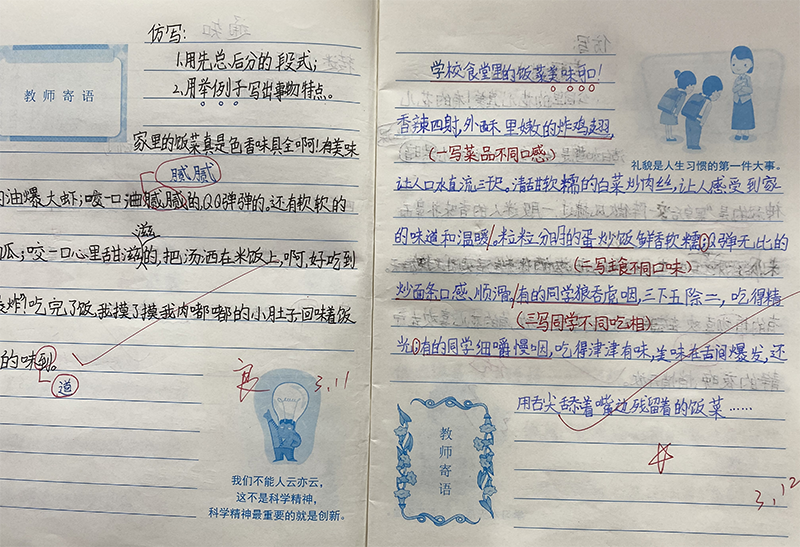 仿写:
1.用先总后分的段式;
2.用举例子写出事物特点。
教师寄语
家里的饭菜真是色香味具全啊!有美味
腻腻
油爆大虾;咬一口油腻腻的QQ弹弹的。还有软软的
滋
瓜;咬一口心里甜滋的,把汤洒在米饭上,啊,好吃到
爆炸?吃完了饭,我摸了摸我肉嘟嘟的小肚子回味着饭
的味到。
道
良
3,11
我们不能人云亦云,
这不是科学精神,
科学精神最重要的就是创新。
学校食堂里的饭菜美味可口!
香辣四射,外酥里嫩的炸鸡翅,
(一写菜品不同口感)
礼貌是人生习惯的第一件大事。
让人口水直流三千尺。清甜软糯的白菜炒肉丝,让人感受到家
的味道和温暖,粒粒分明的蛋炒饭鲜香软糯;Q弹无比的
(二写主食不同口味)
炒面条口感顺滑,有的同学狼吞虎咽,三下五除二,吃得精
(三写同学不同吃相)
光;有的同学细嚼慢咽,吃得津津有味,美味在舌间爆发,还
用舌尖舔着嘴边残留着的饭菜……
教师寄语
3,12